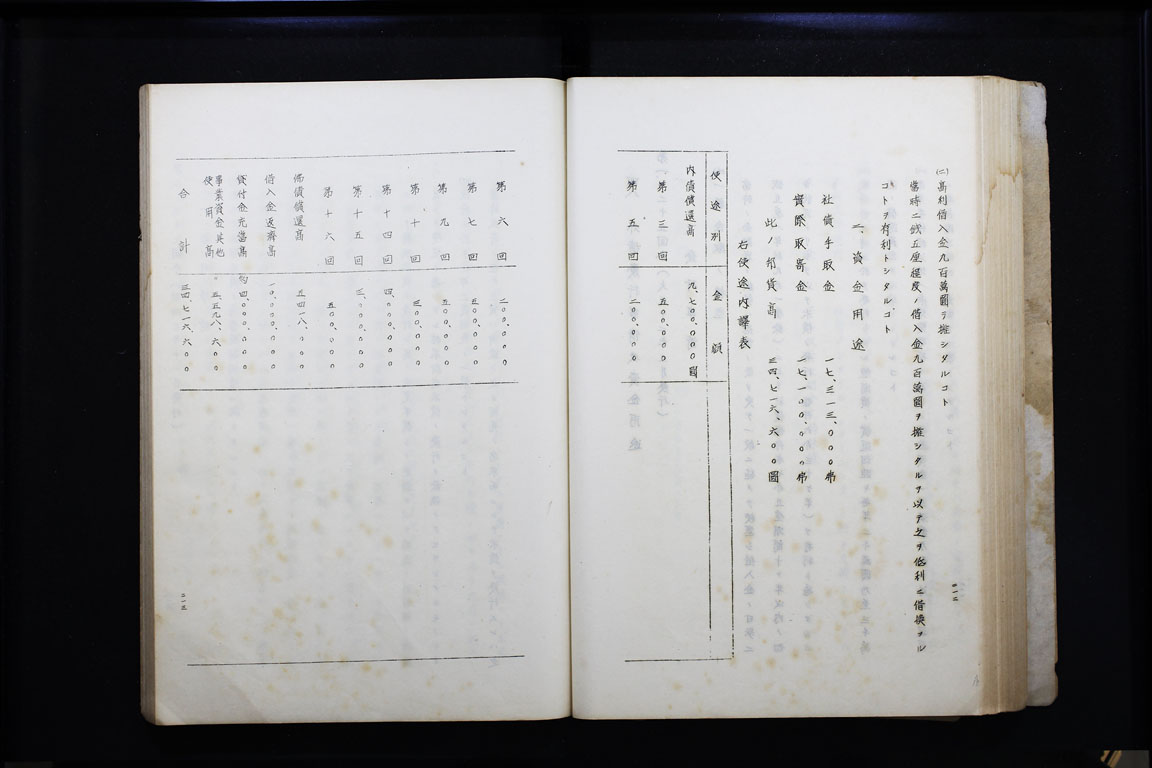 (二)高利借入金九百萬圓ヲ擁シタルコト
當時二錢五厘程度ノ借入金九百萬圓ヲ擁シタルヲ以テ之ヲ低利ニ借換フル
コトヲ有利トシタルコト
二、資金用途
社債手取金 一七、三一三、〇〇〇弗
實際取寄金 一七、一〇〇、〇〇〇弗
此ノ邦貨高 三四、七一六、六〇〇圓
右使途內譯表
使途別 金額
內債償還高 九、七〇〇、〇〇〇圓
第三回 五〇〇、〇〇〇
第五回 二〇〇、〇〇〇
二一二
第六回 二〇〇、〇〇〇
第七回 五〇〇、〇〇〇
第九回 五〇〇、〇〇〇
第十回 三〇〇、〇〇〇
第十四回 四、〇〇〇、〇〇〇
第十五回 三、〇〇〇、〇〇〇
第十六回 五〇〇、〇〇〇
佛債償還高 五、四一八、〇〇〇
借入金返濟高 一〇、〇〇〇、〇〇〇
貸付金充當高 約四、〇〇〇、〇〇〇
事業資金其他使用高 〃五、五九八、六〇〇
合計 三四、七一六、六〇〇
二一三